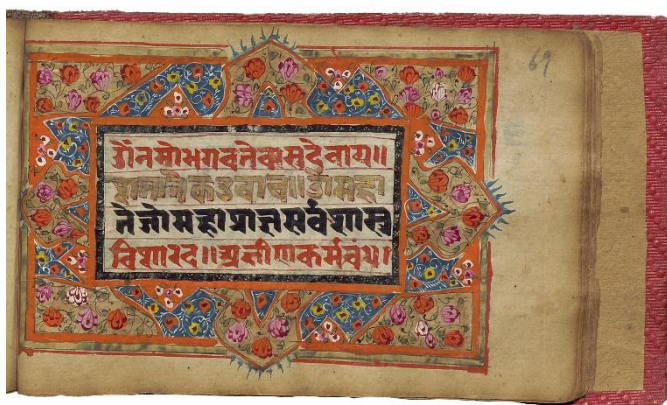 69
ॐनमोभगवतेवासुदेवाय॥
शतानीकउवाच॥ॐमहा
तेजोमहाप्राज्ञसर्वशास्त्र
विशारद॥अक्षीणकर्मबंध।